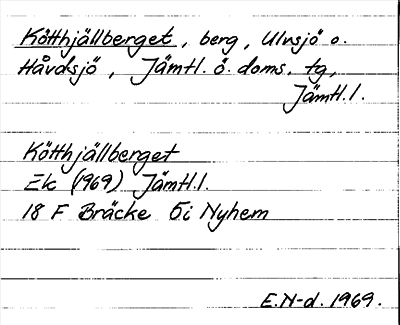 Kötthjällberget, berg, Ulvsjö o.
Håvdsjö, Jämtl. ö. doms. tg,
Jämtl.l.
Kötthjällberget
Ek (1969) Jämtl.l.
18 F Bräcke 5i Nyhem
E.N-d. 1969.